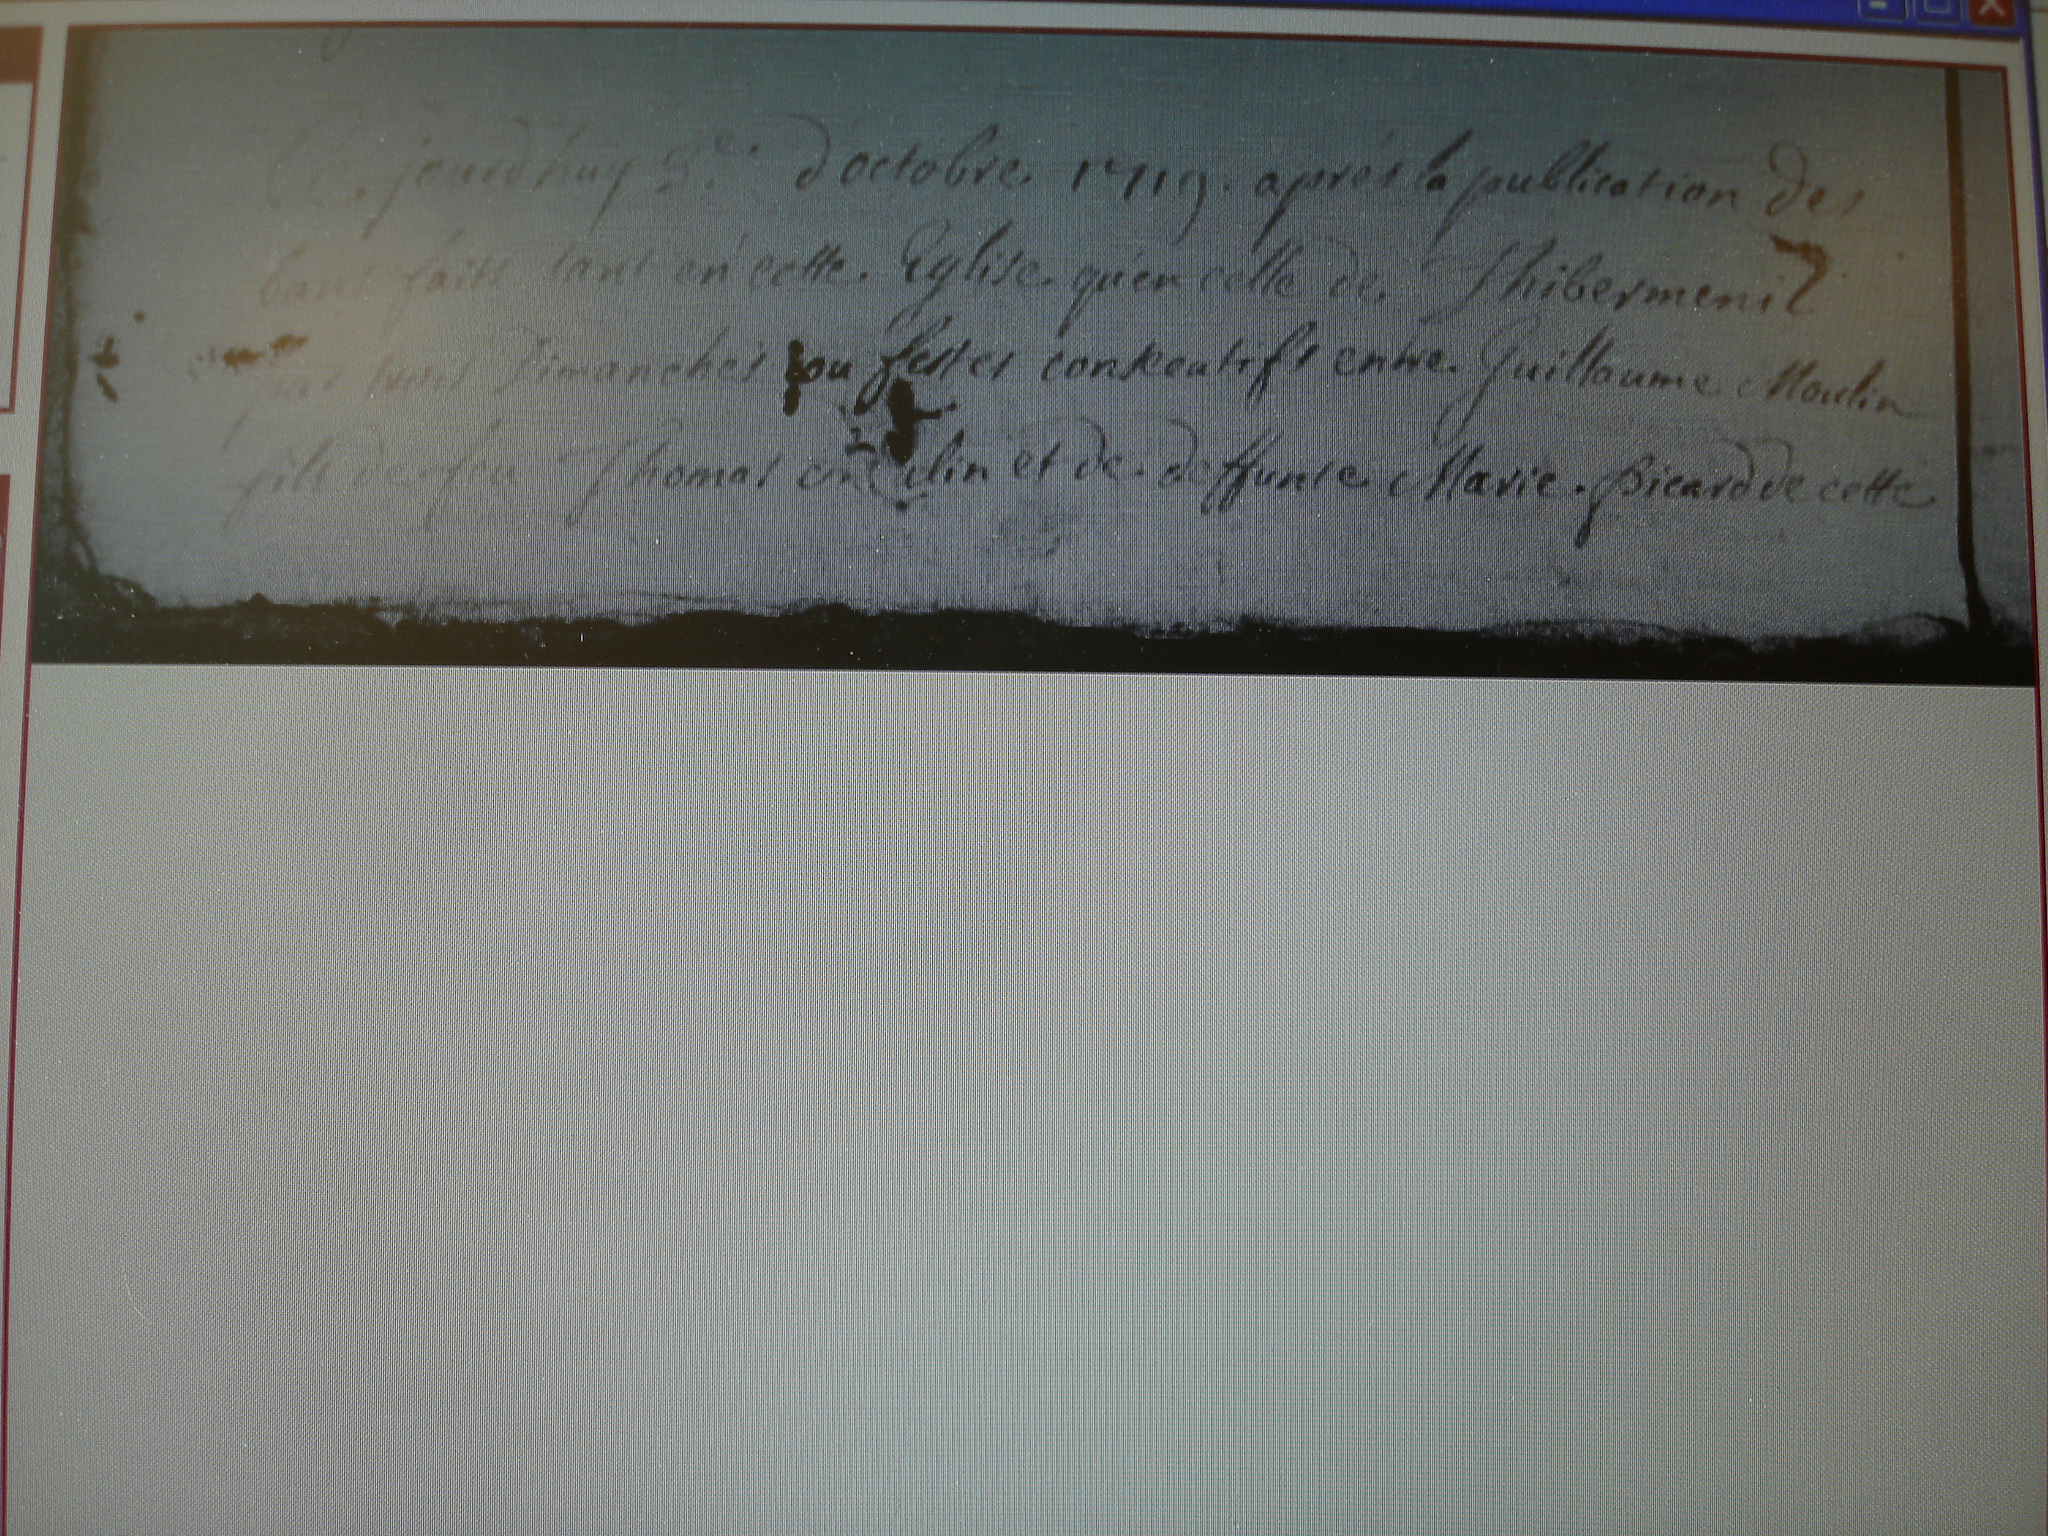 Ce jourdhuy 3e. d'octobre 1719. après la publication des
bans faits tant en cette Eglise qu'en celle de Thibermenil
par trois Dimanches ou festes conskcutifs entre Guillaume Moulin
fils de feu Thomas et de deffunte Marie Picard de cette